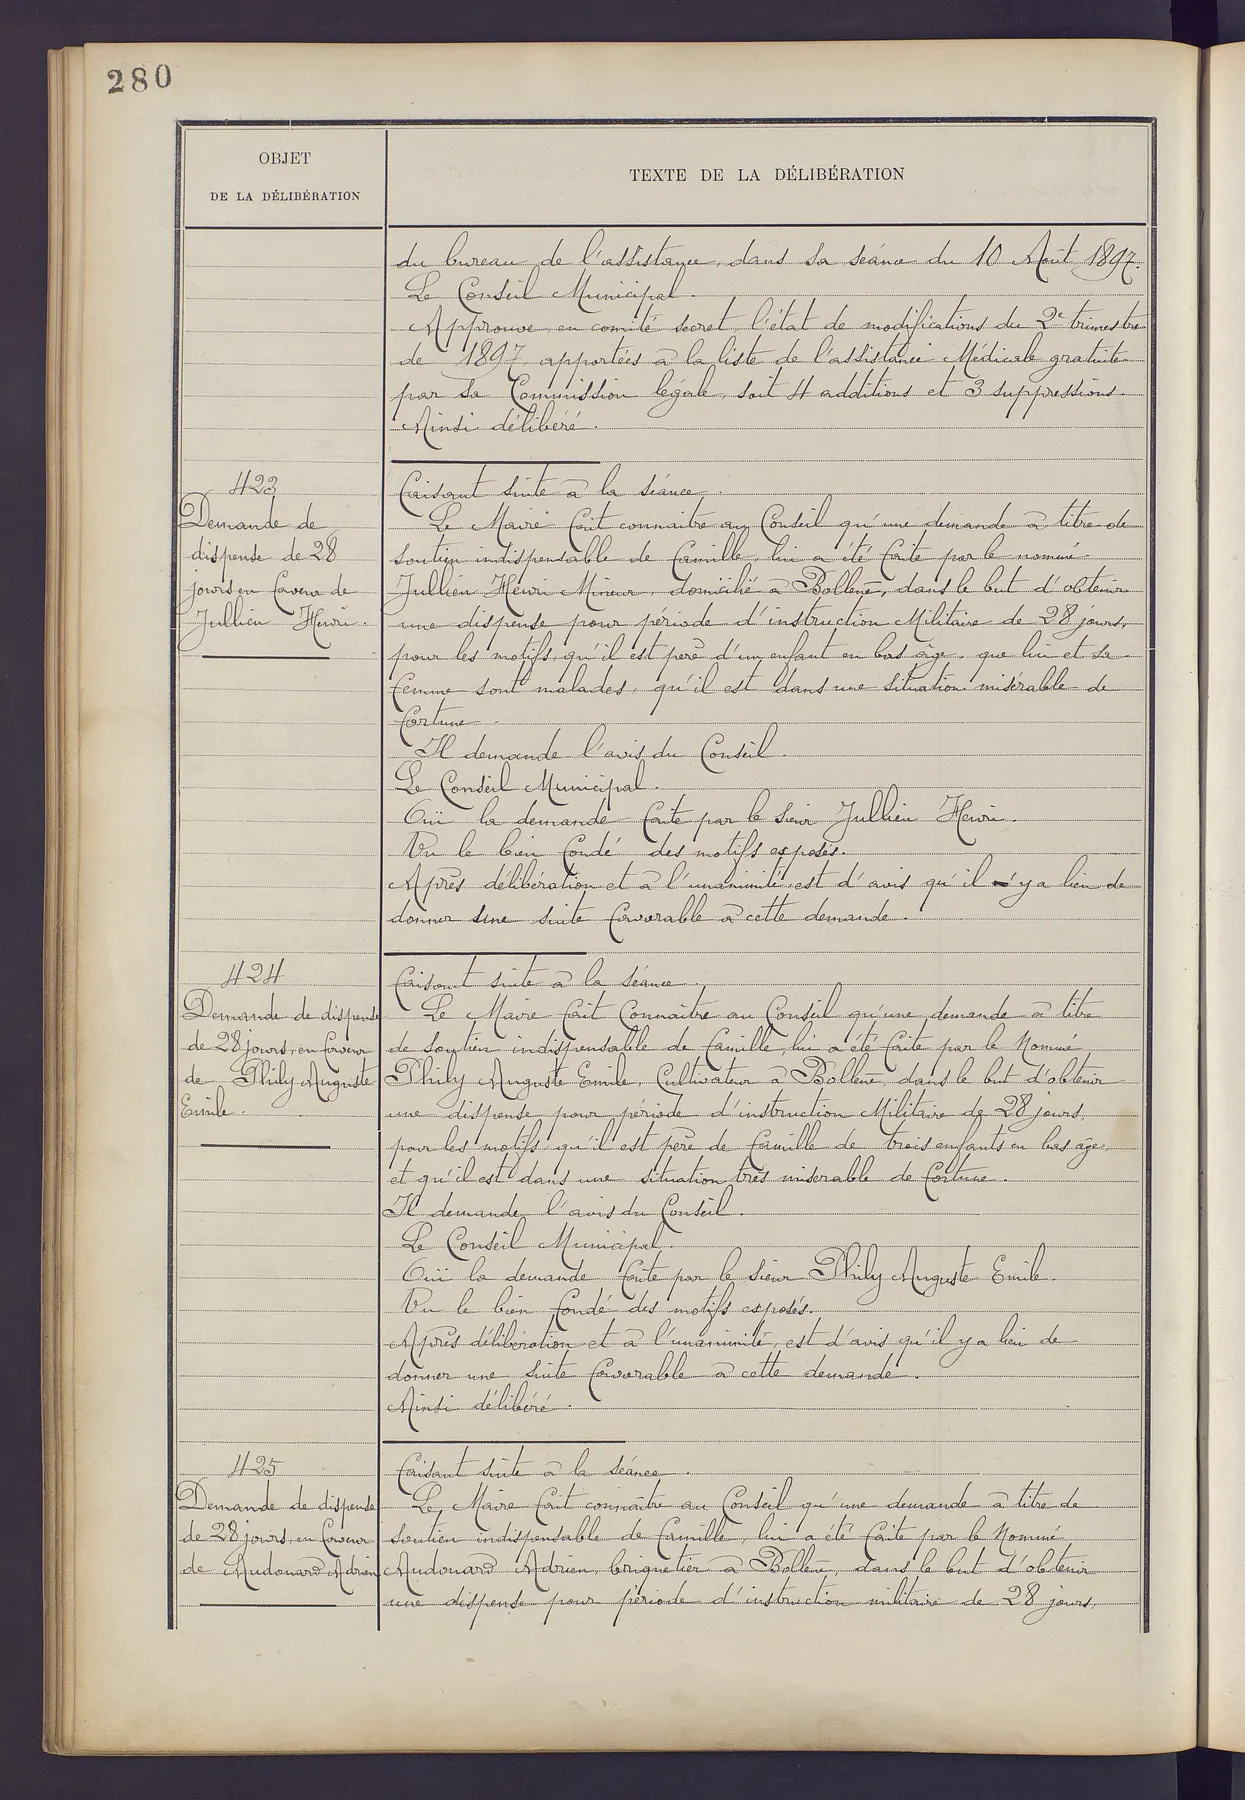 280
OBJET
DE LA DÉLIBÉRATION
TEXTE DE LA DÉLIBÉRATION
du bureau de l'assistance, dans sa séance du 10 Août 1897.
Le Conseil Municipal.
Approuve, en comité secret, l'état de modifications du 2e trimestre
de 1897 apportées à la liste de l'assistance Médicale gratuite
par la Commission légale, soit 4 additions et 3 suppressions.
Ainsi délibéré.
423
Demande de
dispense de 28
jours en faveur de
Jullien Henri.
Faisant suite à la séance.
Le Maire fait connaitre au Conseil qu'une demande à titre de
soutien indispensable de famille, lui a été faite par le nommé
Jullien Henri Mineur, domicilié à Bollène, dans le but d'obtenir
une dispense pour période d'instruction Militaire de 28 jours,
pour les motifs, qu'il est père d'un enfant en bas âge, que lui et sa
femme sont malades, qu'il est dans une situation misérable de
fortune.
Il demande l'avis du Conseil.
Le Conseil Municipal.
Ouï la demande faite par le sieur Jullien Henri.
Vu le bien fondé des motifs exposés.
Après délibération et à l'unanimité, est d'avis qu'il y a lieu de
donner une suite favorable à cette demande.
424
Demande de dispense
de 28 jours, en faveur
de Phily Auguste
Emile.
Faisant suite à la séance.
Le Maire fait Connaitre au Conseil qu'une demande à titre
de soutien indispensable de famille, lui a été faite par le Nommé
Phily Auguste Emile, Cultivateur à Bollène, dans le but d'obtenir
une dispense pour période d'instruction Militaire de 28 jours,
pour les motifs, qu'il est père de famille de trois enfants en bas âge,
et qu'il est dans une situation très miserable de fortune.
Il demande l'avis du Conseil.
Le Conseil Municipal.
Ouï la demande faite par le sieur Phily Auguste Emile.
Vu le bien fondé des motifs exposés.
Après délibération et à l'unanimité, est d'avis qu'il y a lieu de
donner une suite favorable à cette demande.
Ainsi délibéré.
425
Demande de dispense
de 28 jours, en faveur
de Audouard Adrien.
Faisant suite à la séance.
Le Maire fait connaitre au Conseil qu'une demande à titre de
soutien indispensable de famille, lui a été faite par le Nommé
Audouard Adrien, briquetier à Bollène, dans le but d'obtenir
une dispense pour période d'instruction militaire de 28 jours,